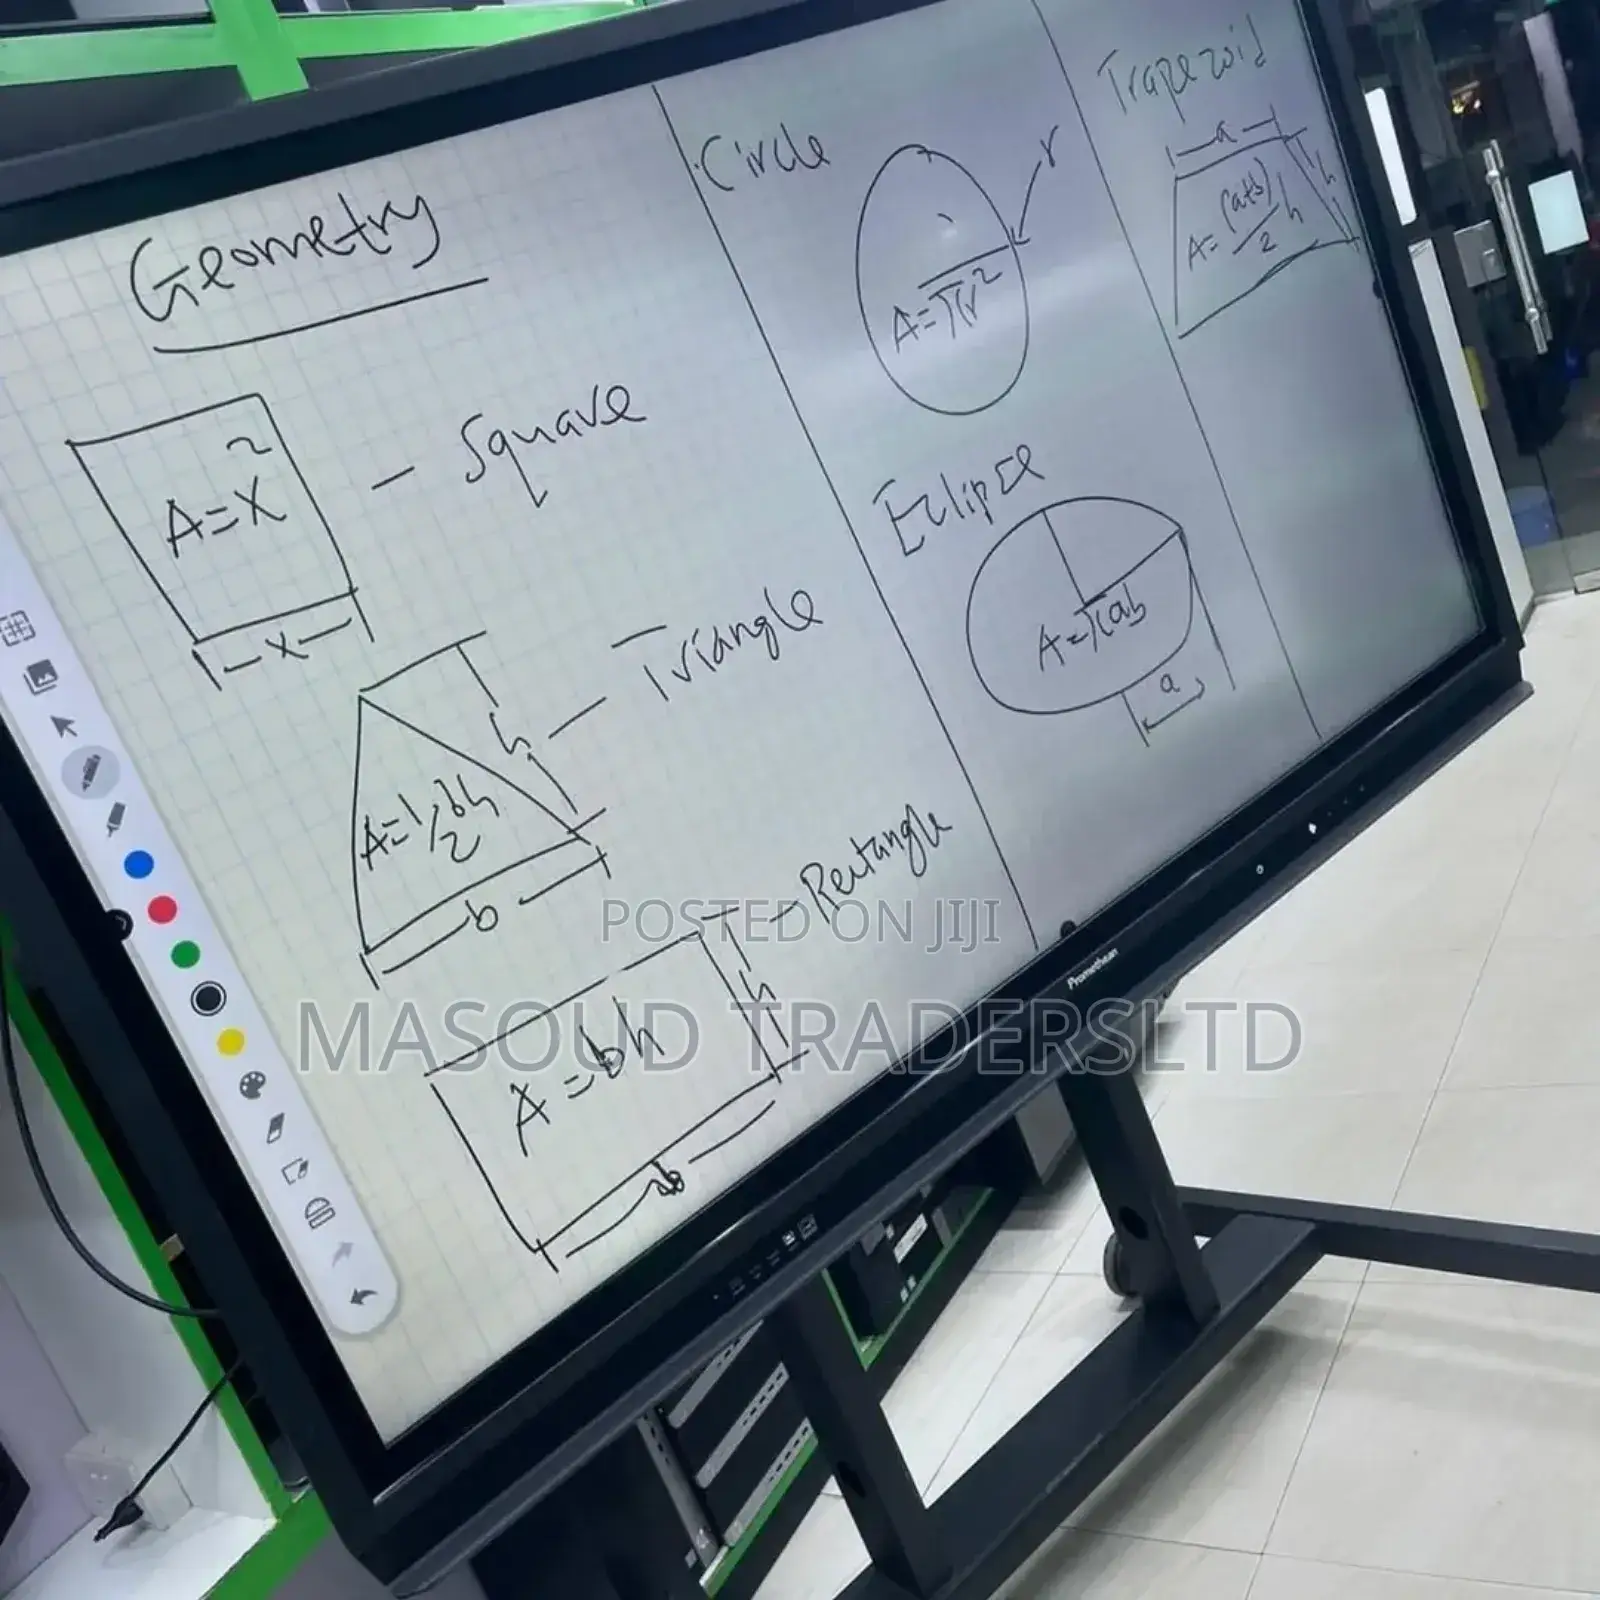 Geometry
A=x²
- Square
x
h
- Triangle
A=1/2 bh
b
- Rectangle
h
A=bh
b
Circle
r
A=πr²
Eclipse
A=πab
a
Trapezoid
a
h
A=(a+b)/2 h
Promethean
POSTED ON JIJI
MASOUD TRADERSLTD